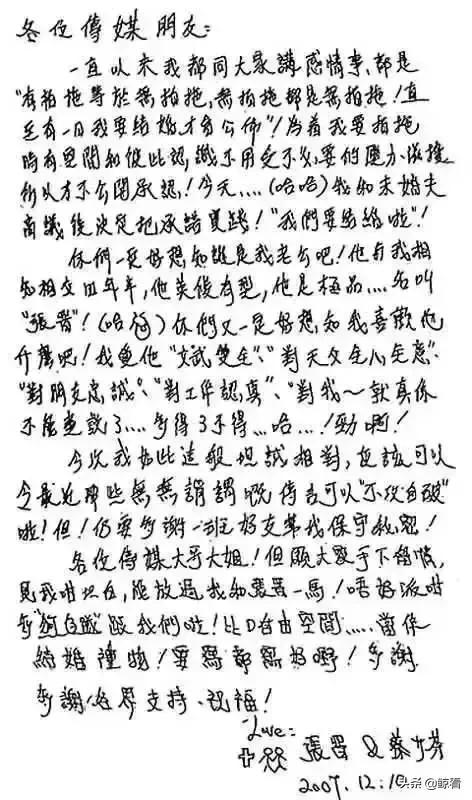 各位傳媒朋友:
一直以來我都同大家講感情事、都是
"有拍拖等於無拍拖,無拍拖都是無拍拖!直
至有一日我要結婚,才會公佈"!為着我要拍拖
時有空間和彼此認識不用受不必要的壓力
所以才不公開承認!今天....(哈哈)我和未婚夫
商議後決定把承諾實踐!"我們要結婚啦"!
你們一定好想知誰是我老公吧!他與我相
知相交四年半,他英俊有型,他是極品....名叫
"張晉"!(哈哈)你們又一定好想知我喜歡他
什麼吧!我愛他"文武雙全"、"對天父全心全意"、
"對朋友忠誠"、"對工作認真"、"對我~就真係
不能盡錄了....多得3不得...哈...!勁啊!
今次我如此這般坦誠相對,應該可以
令最近那些無無謂謂嘅傳言可以"不攻自破"
啦!但!仍要多謝一班好友幫我保守秘密!
各位傳媒大哥大姐!但願大家手下留情,
見我咁坦白,能放過我和張晉一馬!唔好派咁
多"狗仔隊"跟我們啦!比D自由空間.....當作
結婚禮物!要寫都寫好嘢!多謝
多謝各界支持、祝福!
Love:
張晉 & 蔡少芬
2007.12.10
头条 @鲸看